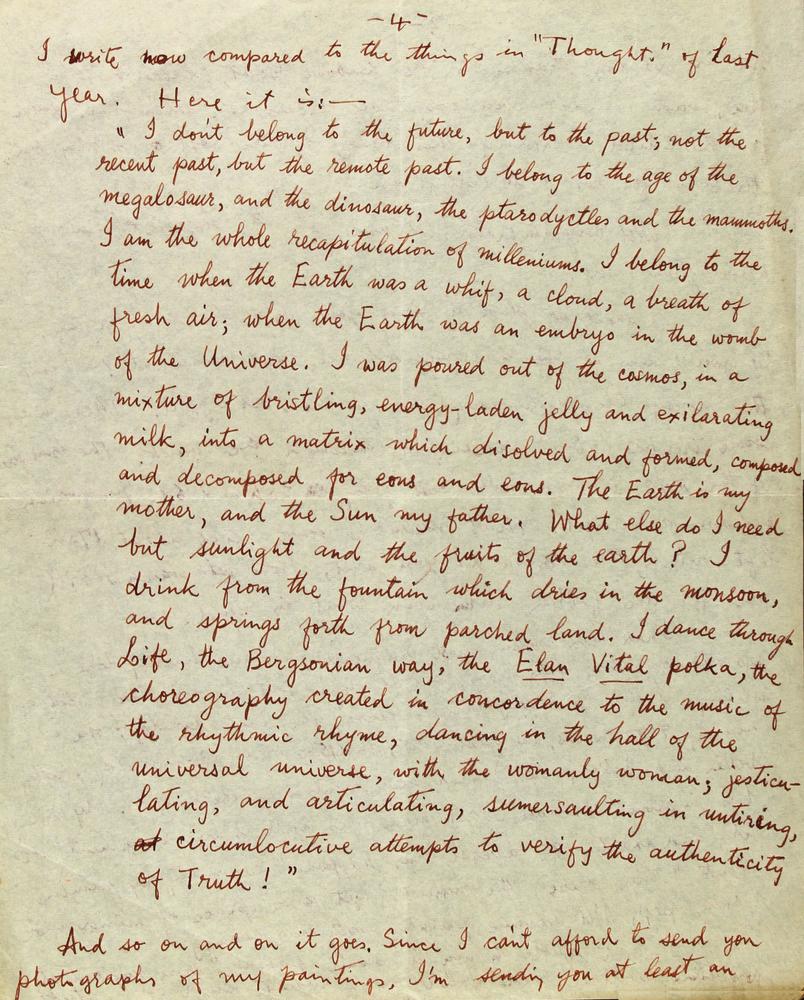 -4-
I write now compared to the things in "Thought." of last
year. Here it is:—
" I don't belong to the future, but to the past; not the
recent past, but the remote past. I belong to the age of the
megalosaur, and the dinosaur, the ptarodyctles and the mammoths.
I am the whole recapitulation of milleniums. I belong to the
time when the Earth was a whif, a cloud, a breath of
fresh air; when the Earth was an embryo in the womb
of the Universe. I was poured out of the cosmos, in a
mixture of bristling, energy-laden jelly and exilarating
milk, into a matrix which disolved and formed, composed
and decomposed for eons and eons. The Earth is my
mother, and the Sun my father. What else do I need
but sunlight and the fruits of the earth? I
drink from the fountain which dries in the monsoon,
and springs forth from parched land. I dance through
Life, the Bergsonian way; the Elan Vital polka, the
choreography created in concordence to the music of
the rhythmic rhyme, dancing in the hall of the
universal universe, with the womanly woman; jesticu-
lating, and articulating, sumersaulting in untiring,
at circumlocutive attempts to verify the authenticity
of Truth! "
And so on and on it goes. Since I can't afford to send you
photographs of my paintings, I'm sending you at least an